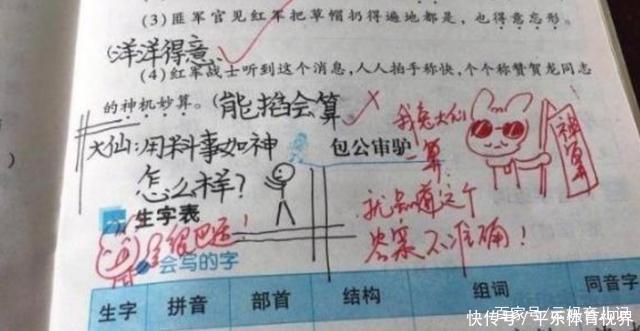 (3)匪军官见红军把草帽扔得遍地都是，也得意忘形。
(洋洋得意)
(4)红军战士听到这个消息，人人拍手称快，个个称赞贺龙同志
的神机妙算。(能掐会算)
大仙:用料事如神
怎么样?
包公审驴
我兔大仙
一算，
就知道这个
答案不准确!
神算
生字表
会写的字
生字 拼音 部首 结构 组词 同音字
百家号/
快传号/平乐体育视界